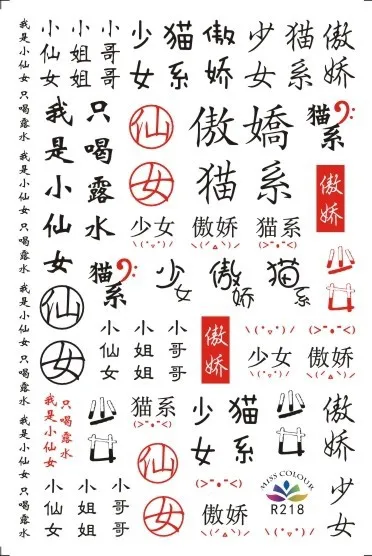 我是小仙女 只喝露水 我是小仙女 只喝露水 我是小仙女 只喝露水 我是小仙女 只喝露水 我是小仙女
小仙女
小姐姐
小哥哥
少女
猫系
傲娇
少女
猫系
傲娇
我是小仙女
只喝露水
仙女
傲嬌
猫系
猫系
傲娇
少女
傲娇
猫系
\(˙▿˙)/
\(˙▵˙)/
(>^•^<)
猫系
少女
傲娇
猫系
少女
仙女
小仙女
小姐姐
小哥哥
傲娇
\(˙▿˙)/
(>^•^<)
少女
傲娇
\(˙▿˙)/
\(˙▵˙)/
我是小仙女
只喝露水
少女
猫系
(>^•^<)
少女
猫系
少女
傲娇
小仙女
小姐姐
小哥哥
仙女
(>^•^<)
傲娇
\(˙▵˙)/
MISS COLOUR
R218
少女